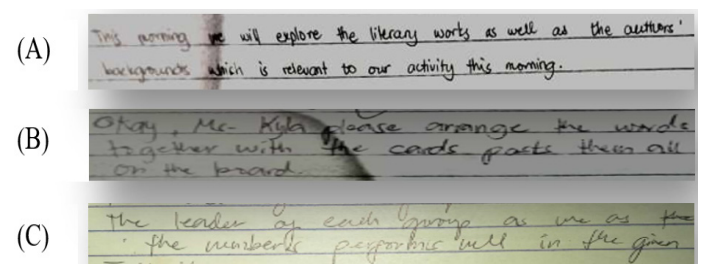 (A)
This morning we will explore the literary works as well as the authors'
backgrounds which is relevant to our activity this morning.
(B)
Okay, Ms. Kyla please arrange the words
together with the cards pasts them all
on the board.
(C)
The leader of each group as we as the
the members performs well in the given